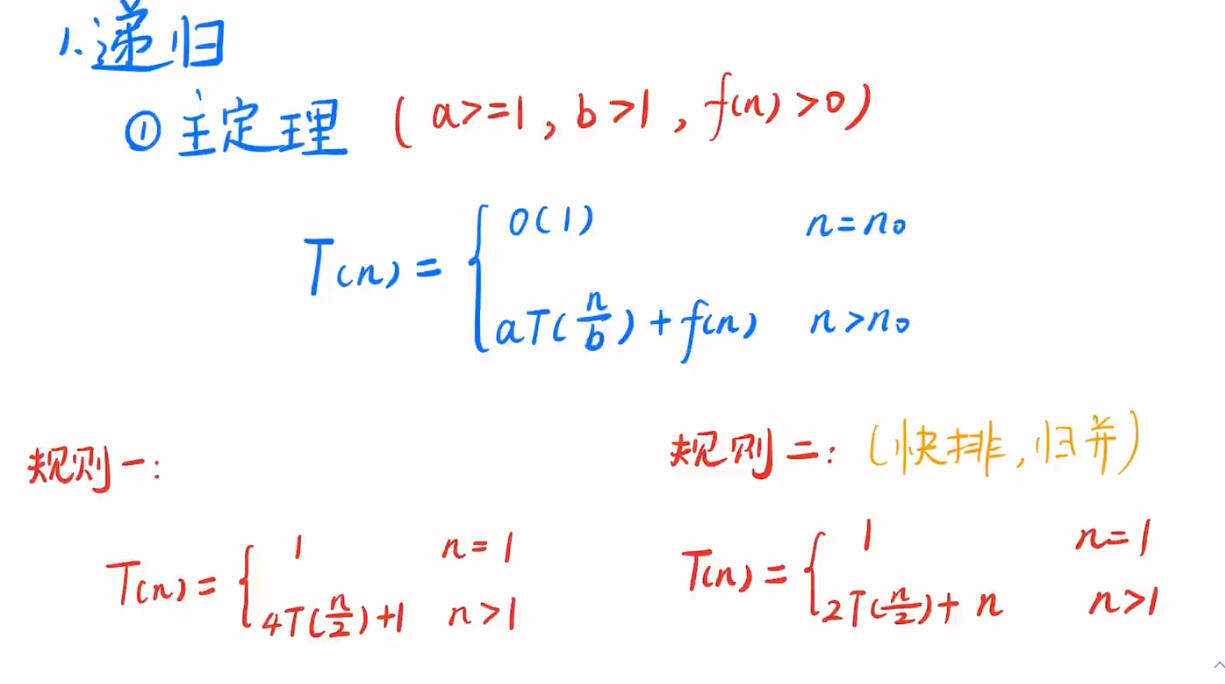 1.递归
① 主定理 (a>=1, b>1, f(n)>0)
T(n) = { O(1) n=n₀
aT(n/b)+f(n) n>n₀
规则一:
T(n) = { 1 n=1
4T(n/2)+1 n>1
规则二: (快排,归并)
T(n) = { 1 n=1
2T(n/2)+n n>1